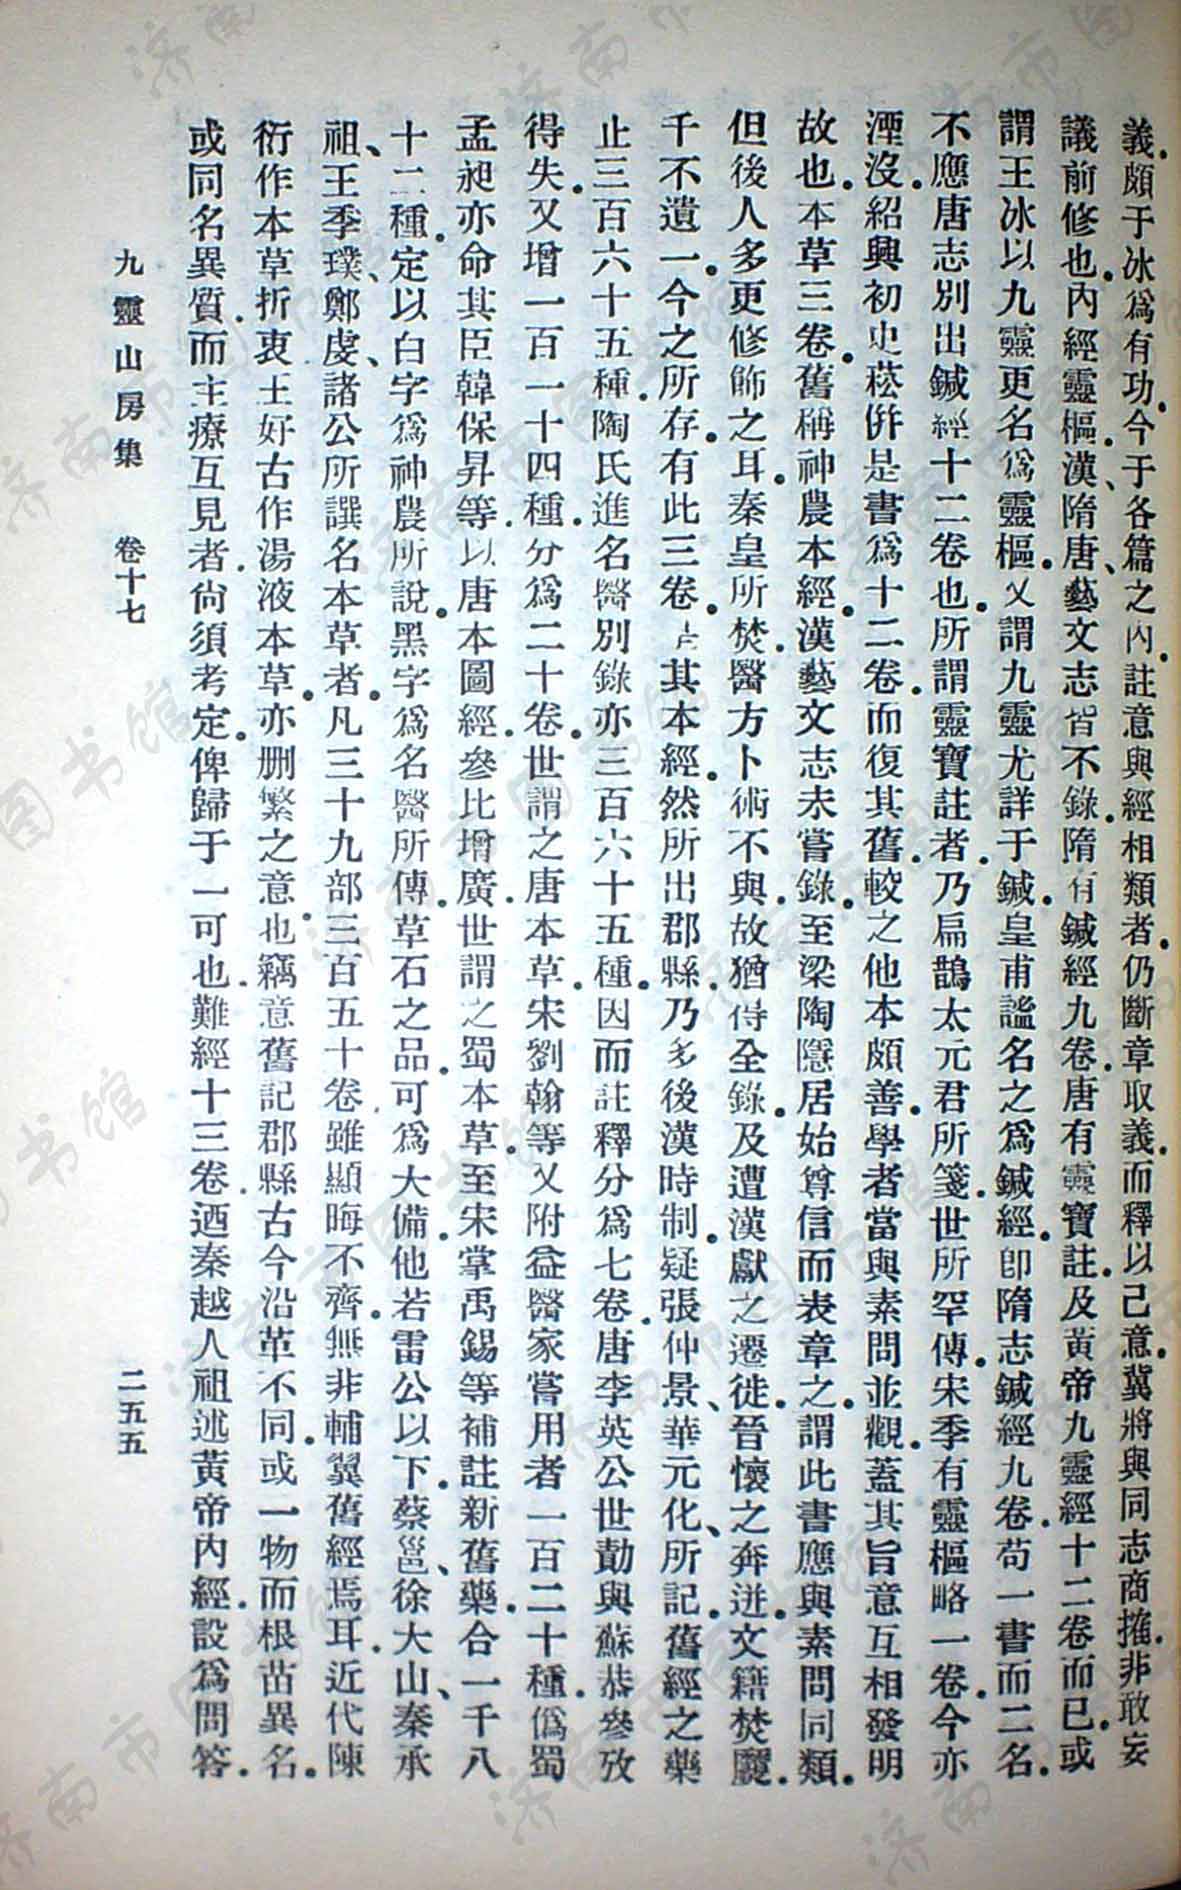 義。頗于冰爲有功。今于各篇之內。註意與經相類者。仍斷章取義。而釋以己意。冀將與同志商搉。非敢妄
議前修也。內經靈樞。漢、隋、唐、藝文志皆不錄。隋有鍼經九卷。唐有靈寶註。及黃帝九靈經十二卷而已。或
謂王冰以九靈更名爲靈樞。又謂九靈尤詳于鍼。皇甫謐名之爲鍼經。卽隋志鍼經九卷。苟一書而二名。
不應唐志別出鍼經十二卷也。所謂靈寶註者。乃扁鵲太元君所箋。世所罕傳。宋季有靈樞略一卷。今亦
湮沒。紹興初。史菘倂是書爲十二卷。而復其舊。較之他本頗善。學者當與素問並觀。蓋其旨意互相發明
故也。本草三卷。舊稱神農本經。漢藝文志未嘗錄。至梁陶隱居始尊信而表章之。謂此書應與素問同類。
但後人多更修飾之耳。秦皇所焚。醫方卜術不與。故猶得全錄。及遭漢獻之遷徙。晉懷之奔迸。文籍焚爢。
千不遺一。今之所存。有此三卷。是其本經。然所出郡縣。乃多後漢時制。疑張仲景、華元化、所記。舊經之藥
止三百六十五種。陶氏進名醫別錄。亦三百六十五種。因而註釋。分爲七卷。唐李英公世勣。與蘇恭參攷
得失。又增一百一十四種。分爲二十卷。世謂之唐本草。宋劉翰等。又附益醫家嘗用者一百二十種。僞蜀
孟昶亦命其臣韓保昇等。以唐本圖經。參比增廣。世謂之蜀本草。至宋掌禹錫等補註新舊藥。合一千八
十二種。定以白字爲神農所說。黑字爲名醫所傳。草石之品。可爲大備。他若雷公以下。蔡邕、徐大山、秦承
祖、王季璞、鄭虔、諸公所譔名本草者。凡三十九部。三百五十卷。雖顯晦不齊。無非輔翼舊經焉耳。近代陳
衍作本草折衷。王好古作湯液本草。亦刪繁之意也。竊意舊記郡縣。古今沿革不同。或一物而根苗異名。
或同名異質。而主療互見者。尙須考定。俾歸于一可也。難經十三卷。迺秦越人祖述黃帝內經。設爲問答。
九靈山房集　卷十七　二五五